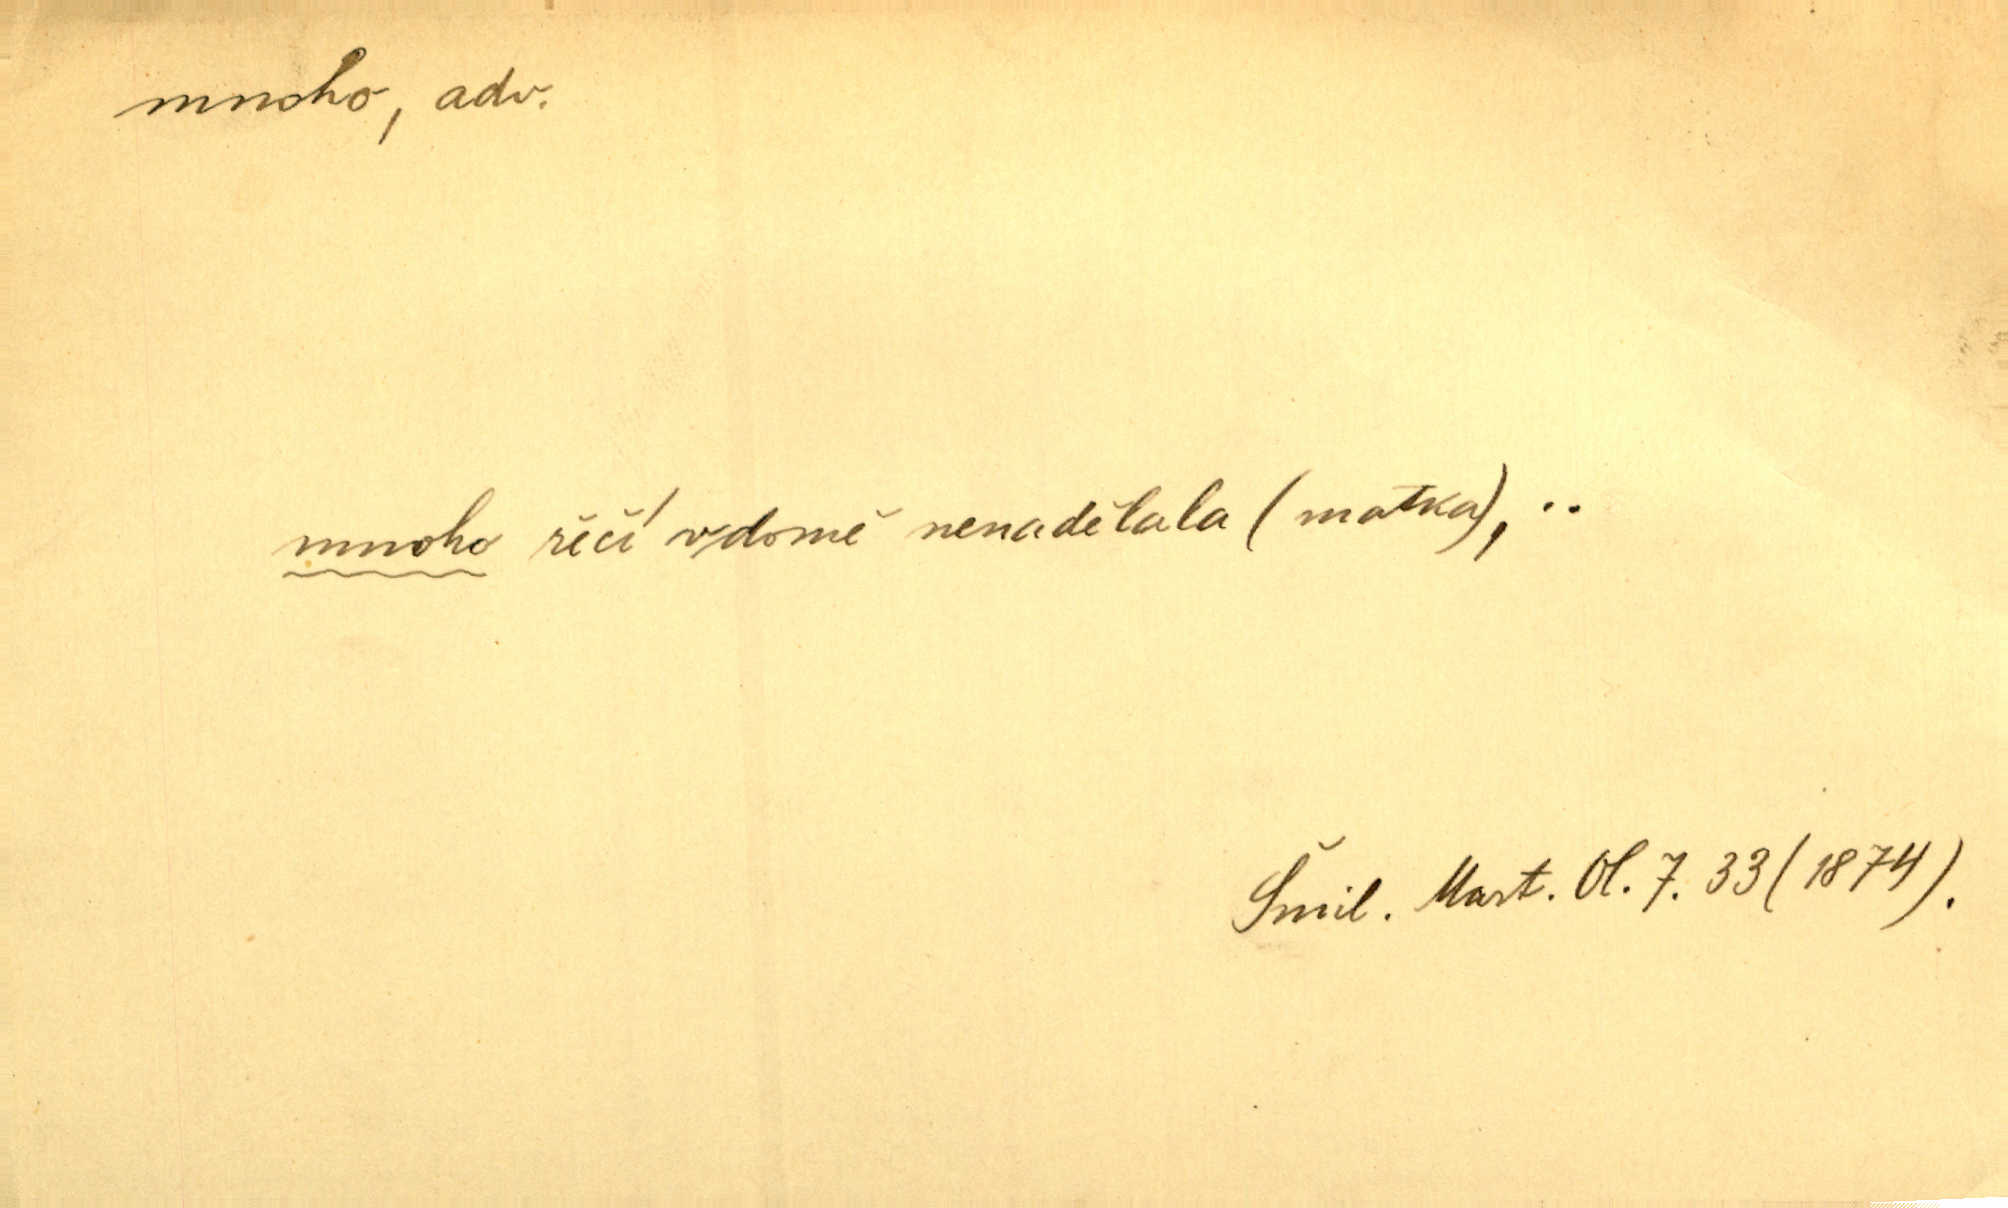 mnoho, adv.
mnoho řečí v domě nenadělala (matka), ..
Šmil. Mart. Ol. 7. 33 (1874).